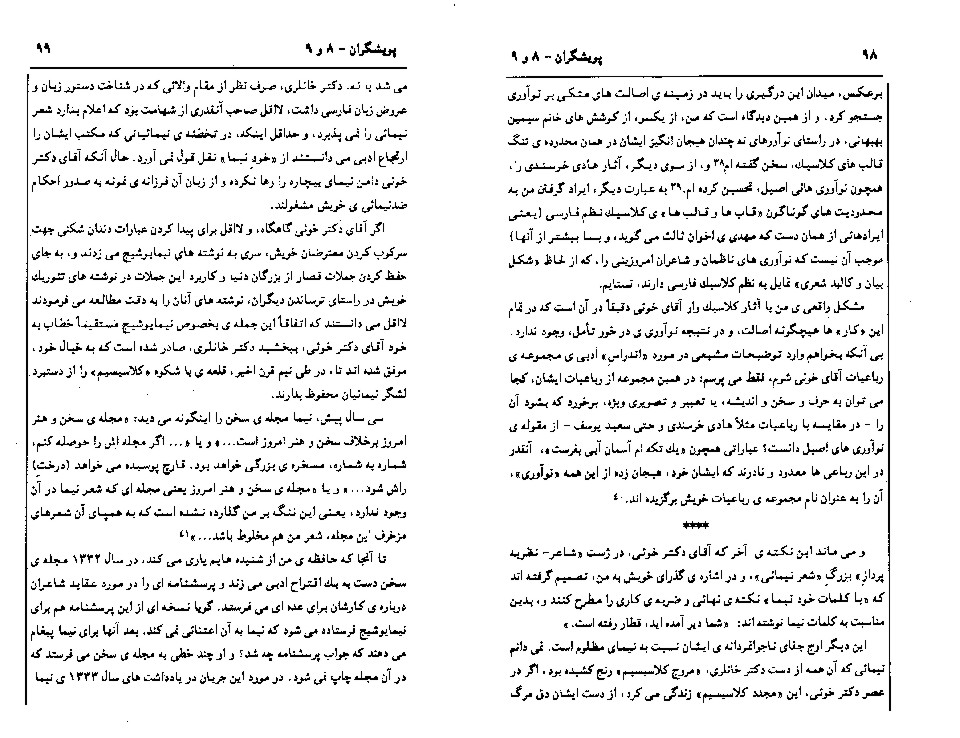 ۹۸ پویشگران – ۸ و ۹
برعکس، میدان این درگیری را باید در زمینه ی اصالت های متکی بر نوآوری
جستجو کرد. و از همین دیدگاه است که من، از یکسو، از کوشش های خانم سیمین
بهبهانی، در راستای نوآورهای نه چندان هیجان انگیز ایشان در همان محدوده ی تنگ
قالب های کلاسیك، سخن گفته ام۳۸ و، از سوی دیگر، آثار هادی خرسندی را،
همچون نوآوری هائی اصیل، تحسین کرده ام.۳۹ به عبارت دیگر، ایراد گرفتن من به
محدودیت های گوناگون «قاب ها و قالب ها» ی کلاسیك نظم فارسی (یعنی
ایرادهائی از همان دست که مهدی ی اخوان ثالث می گوید، و بسا بیشتر از آنها)
موجب آن نیست که نوآوری های ناظمان و شاعران امروزینی را، که از لحاظ «شکل
بیان و کالبد شعری» قایل به نظم کلاسیك فارسی دارند، نستایم.
مشکل واقعی ی من با آثار کلاسیك وار آقای خوئی دقیقاً در آن است که در تمام
این «کار» ها هیچگونه اصالت، و در نتیجه نوآوری ی در خور تأمل، وجود ندارد.
بی آنکه بخواهم وارد توضیحات مشبعی در مورد «اندراس» ادبی ی مجموعه ی
رباعیات آقای خوئی شوم، فقط می پرسم: در همین مجموعه از رباعیات ایشان، کجا
می توان به حرف و سخن و اندیشه، یا تعبیر و تصویری ویژه، برخورد که بشود آن
را – در مقایسه با رباعیات مثلاً هادی خرسندی و حتی سعید یوسف – از مقوله ی
نوآوری های اصیل دانست؟ عباراتی همچون «یك تکه ام آسمان آبی بفرست»، آنقدر
در این رباعی ها معدود و نادرند که ایشان خود، هیجان زده از این همه «نوآوری»،
آن را به عنوان نام مجموعه ی رباعیات خویش برگزیده اند. ۴۰
****
و می ماند این نکته ی آخر که آقای دکتر خوئی، در ژست «شاعر– نظریه
پرداز» بزرگِ «شعر نیمائی»، و در اشاره ی گذرای خویش به من، تصمیم گرفته اند
که «با کلمات خود نیما» نکته ی نهائی و ضربه ی کاری را مطرح کنند و، بدین
مناسبت به کلمات نیما نوشته اند: «شما دیر آمده اید، قطار رفته است.»
این دیگر اوج جفای ناجوانمردانه ی ایشان نسبت به نیمای مظلوم است. نمی دانم
نیمائی که آن همه از دست دکتر خانلری، «مروج کلاسیسیم» رنج کشیده بود، اگر در
عصر دکتر خوئی، این «مجدد کلاسیسیم» زندگی می کرد، از دست ایشان دق مرگ
پویشگران – ۸ و ۹ ۹۹
می شد یا نه. دکتر خانلری، صرف نظر از مقام والائی که در شناخت دستور زبان و
عروض زبان فارسی داشت، لااقل صاحب آنقدری از شهامت بود که اعلام بدارد شعر
نیمائی را نمی پذیرد، و حداقل اینکه، در تخطئه ی نیمائیانی که مکتب ایشان را
ارتجاع ادبی می دانستند از «خودِ نیما» نقل قول نمی آورد. حال آنکه آقای دکتر
خوئی دامن نیمای بیچاره را رها نکرده و از زبان آن فرزانه ی نمونه به صدور احکام
ضدنیمائی ی خویش مشغولند.
اگر آقای دکتر خوئی گاهگاه، و لااقل برای پیدا کردن عبارات دندان شکنی جهت
سرکوب کردن معترضان خویش، سری به نوشته های نیمایوشیج می زدند و، به جای
حفظ کردن جملات قصار از بزرگان دنیا و کاربرد این جملات در نوشته های تئوریك
خویش در راستای ترساندن دیگران، نوشته های آنان را به دقت مطالعه می فرمودند
لااقل می دانستند که اتفاقاً این جمله ی بخصوص نیمایوشیج مستقیماً خطاب به
خود آقای دکتر خوئی، ببخشید دکتر خانلری، صادر شده است که به خیال خود،
موفق شده اند تا، در طی نیم قرن اخیر، قلعه ی با شکوه «کلاسیسیم» را از دستبرد
لشگر نیمائیان محفوظ بدارند.
سی سال پیش، نیما مجله ی سخن را اینگونه می دید: «مجله ی سخن و هنر
امروز برخلاف سخن و هنر امروز است...» و یا «... اگر مجله اش را حوصله کنم،
شماره به شماره، مسخره ی بزرگی خواهد بود. قارچ پوسیده می خواهد (درخت)
راش شود...» و یا «مجله ی سخن و هنر امروز یعنی مجله ای که شعر نیما در آن
وجود ندارد، یعنی این ننگ بر من گذارده نشده است که به همپای آن شعرهای
مزخرف این مجله، شعر من هم مخلوط باشد...»۴۱
تا آنجا که حافظه ی من از شنیده هایم یاری می کند، در سال ۱۳۳۲ مجله ی
سخن دست به یك اقتراح ادبی می زند و پرسشنامه ای را در مورد عقاید شاعران
درباره ی کارشان برای عده ای می فرستد. گویا نسخه ای از این پرسشنامه هم برای
نیمایوشیج فرستاده می شود که نیما به آن اعتنائی نمی کند. بعد آنها برای نیما پیغام
می دهند که جواب پرسشنامه چه شد؟ و او چند خطی به مجله ی سخن می فرستد که
در آن مجله چاپ نمی شود. در مورد این جریان در یادداشت های سال ۱۳۳۳ ی نیما